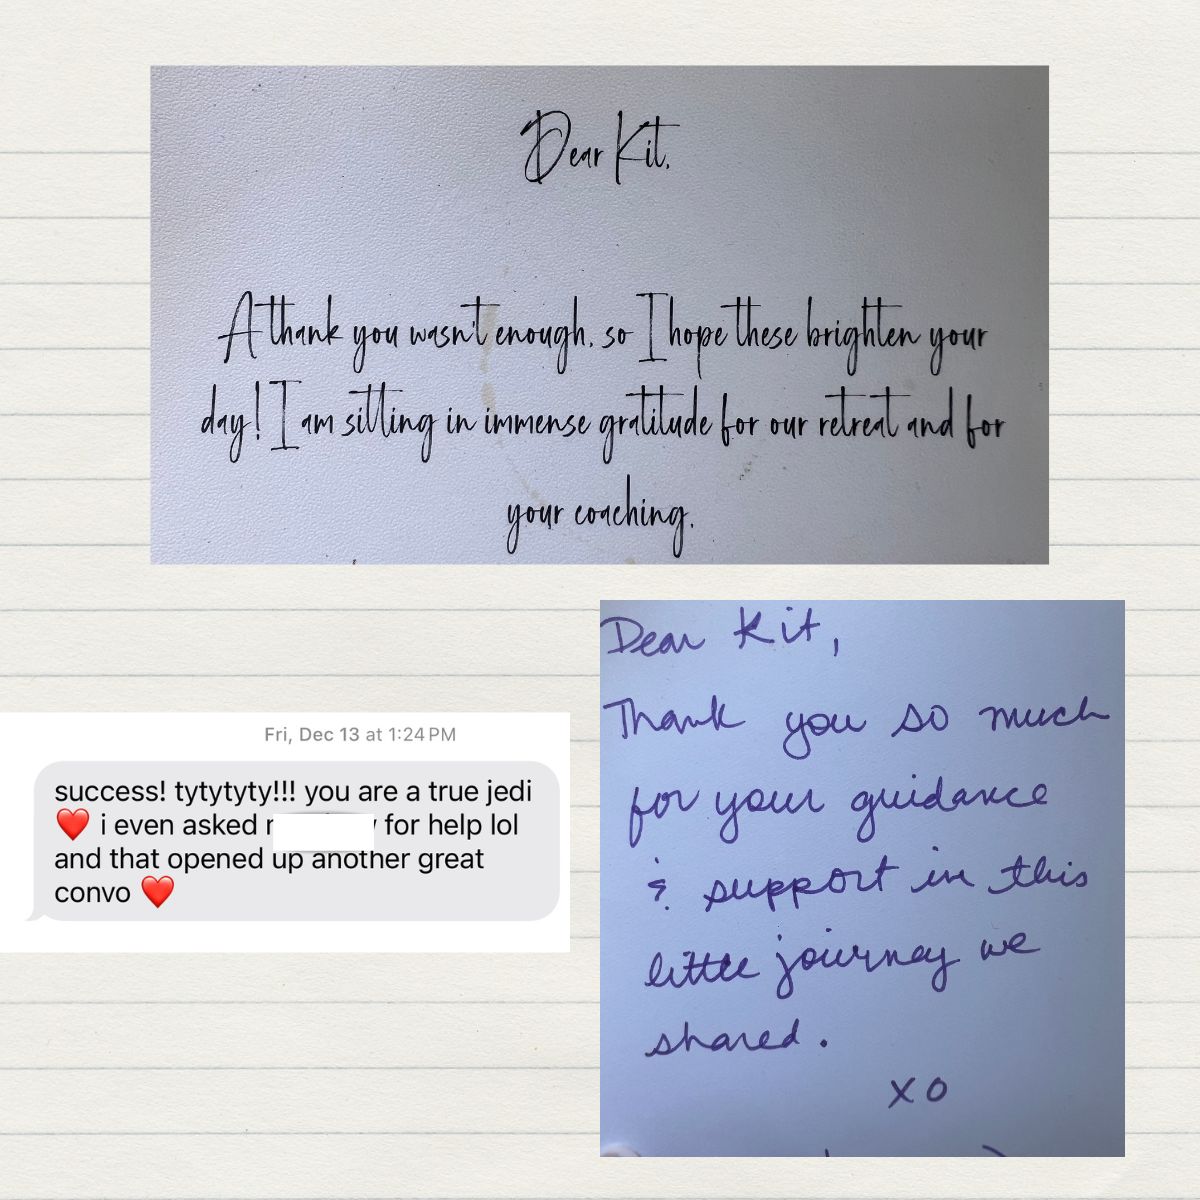 Dear Kit,
A thank you wasn't enough, so I hope these brighten your
day! I am sitting in immense gratitude for our retreat and for
your coaching.
Fri, Dec 13 at 1:24 PM
success! tytytyty!!! you are a true jedi
❤️ i even asked for help lol
and that opened up another great
convo ❤️
Dear Kit,
Thank you so much
for your guidance
& support in this
little journey we
shared.
XO